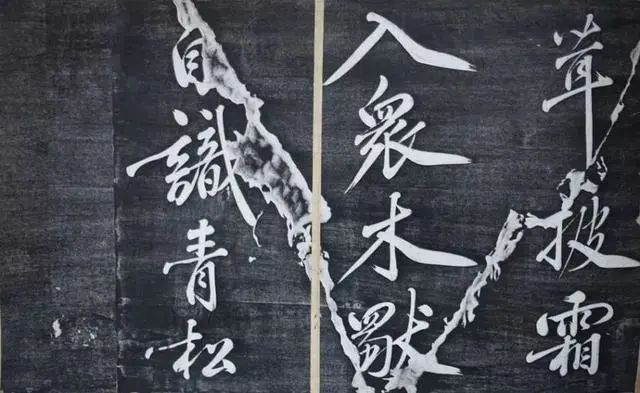 茸披霜
入衆木獨
自識青松